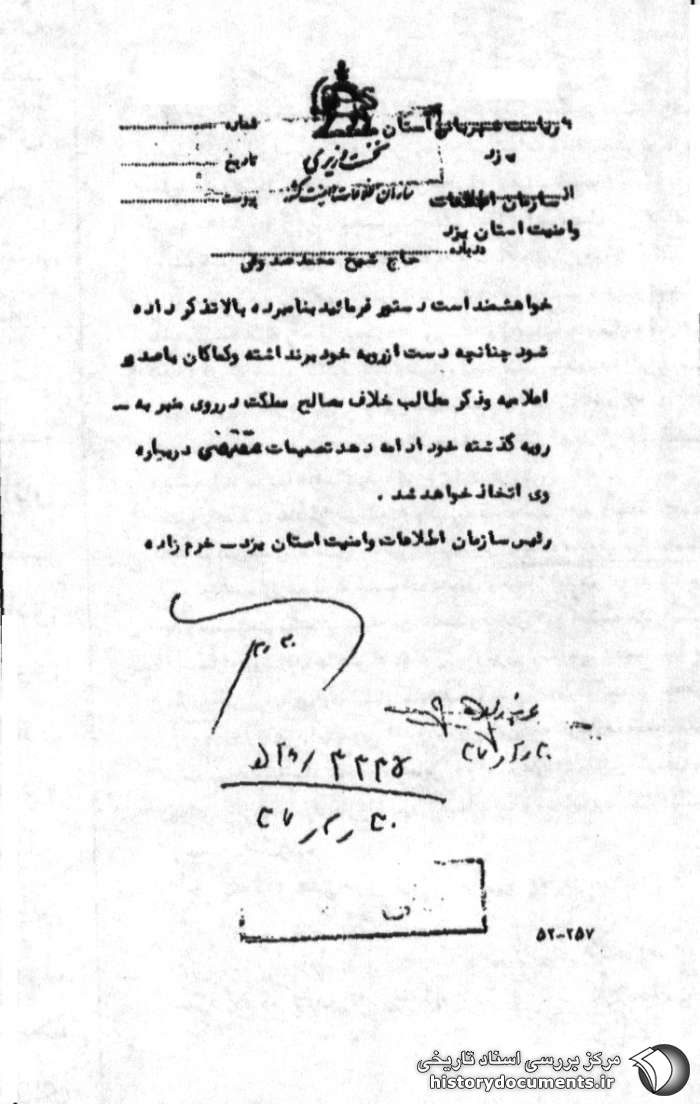 به ریاست شهربانی استان
یزد
شماره
نخست وزیری
تاریخ
سازمان اطلاعات و امنیت کشور
پیوست
از سازمان اطلاعات
وامنیت استان یزد
درباره حاج شیخ محمد صدوقی
خواهشمند است دستور فرمائید بنامبرده بالا تذکر داده
شود چنانچه دست از رویه خود برنداشته وکماکان باصدور
اعلامیه وذکر مطالب خلاف مصالح مملکت درروی منبر به ـ
رویه گذشته خود ادامه دهد تصمیمات مقتضی درباره
وی اتخاذ خواهد شد .
رئیس سازمان اطلاعات وامنیت استان یزد ـ خرم زاده
۵۲-۲۵۷
مرکز بررسی اسناد تاریخی
historydocuments.ir